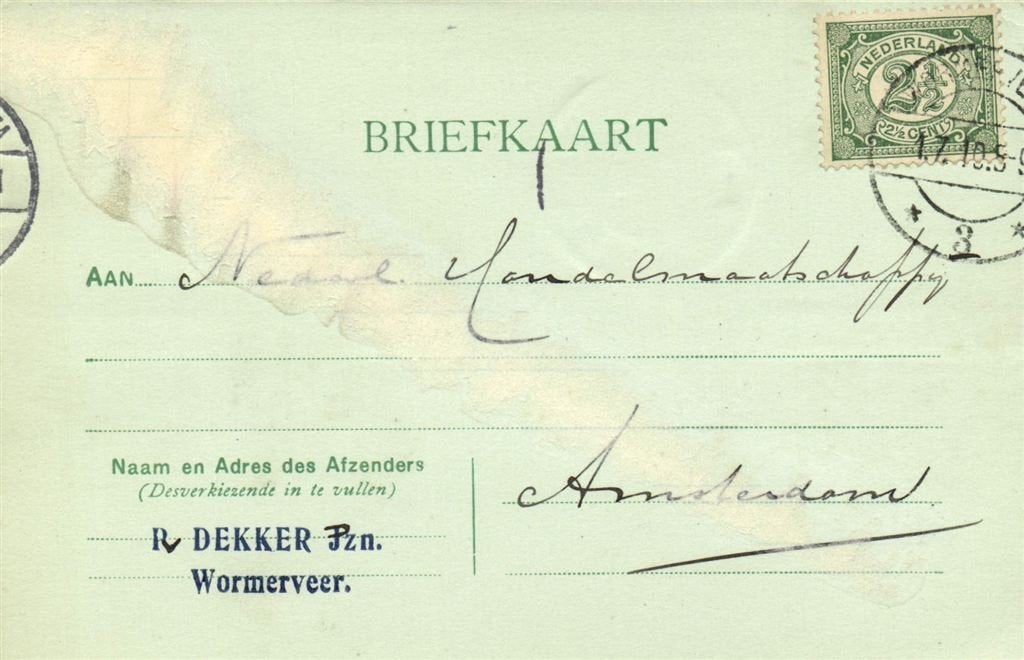 NEDERLAND
2½
2½ CENT
BRIEFKAART
1.7.10.8-9
3
AAN Nederl. Handelmaatschappy
Amsterdam
Naam en Adres des Afzenders
(Desverkiezende in te vullen)
DEKKER Pzn.
Wormerveer.